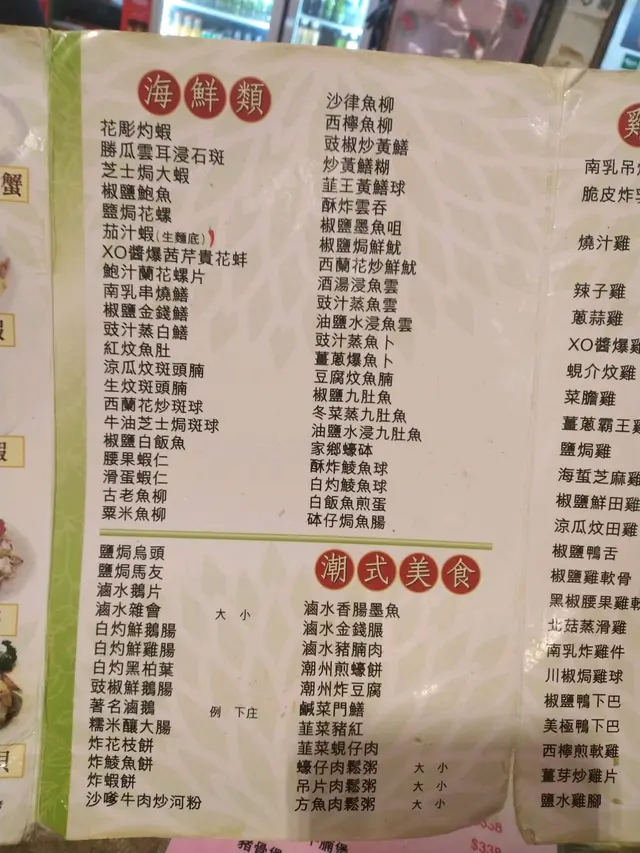 海鮮類
花彫灼蝦
勝瓜雲耳浸石斑
芝士焗大蝦
椒鹽鮑魚
鹽焗花螺
茄汁蝦(生麵底)
XO醬爆茜芹貴花蚌
鮑汁蘭花螺片
南乳串燒鱔
椒鹽金錢鱔
豉汁蒸白鱔
紅炆魚肚
涼瓜炆斑頭腩
生炆斑頭腩
西蘭花炒斑球
牛油芝士焗斑球
椒鹽白飯魚
腰果蝦仁
滑蛋蝦仁
古老魚柳
粟米魚柳
沙律魚柳
西檸魚柳
豉椒炒黃鱔
炒黃鱔糊
韮王黃鱔球
酥炸雲吞
椒鹽墨魚咀
椒鹽焗鮮魷
西蘭花炒鮮魷
酒湯浸魚雲
豉汁蒸魚雲
油鹽水浸魚雲
豉汁蒸魚卜
薑蔥爆魚卜
豆腐炆魚腩
椒鹽九肚魚
冬菜蒸九肚魚
油鹽水浸九肚魚
家鄉蠔砵
酥炸鯪魚球
白灼鯪魚球
白飯魚煎蛋
砵仔焗魚腸
鹽焗烏頭
鹽焗馬友
滷水鵝片
滷水雜會 大 小
白灼鮮鵝腸
白灼鮮雞腸
白灼黑柏葉
豉椒鮮鵝腸
著名滷鵝 例 下庄
糯米釀大腸
炸花枝餅
炸鯪魚餅
炸蝦餅
沙嗲牛肉炒河粉
潮式美食
滷水香腸墨魚
滷水金錢𦟌
滷水豬腩肉
潮州煎蠔餅
潮州炸豆腐
鹹菜門鱔
韮菜豬紅
韮菜蜆仔肉
蠔仔肉鬆粥 大 小
吊片肉鬆粥 大 小
方魚肉鬆粥 大 小
雞
南乳吊
脆皮炸
燒汁雞
辣子雞
蔥蒜雞
XO醬爆雞
蜆介炆雞
菜膽雞
薑蔥霸王雞
鹽焗雞
海蜇芝麻雞
椒鹽鮮田雞
涼瓜炆田雞
椒鹽鴨舌
椒鹽雞軟骨
黑椒腰果雞
北菇蒸滑雞
南乳炸雞件
川椒焗雞球
椒鹽鴨下巴
美極鴨下巴
西檸煎軟雞
薑芽炒雞片
鹽水雞腳
蟹
$338